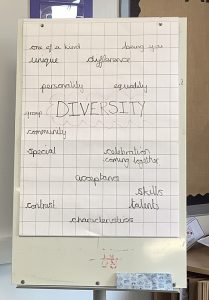 one of a kind being you
unique difference
personality equality
group DIVERSITY
community
special celebration
coming together
acceptance
skills
contrast talents
characteristics